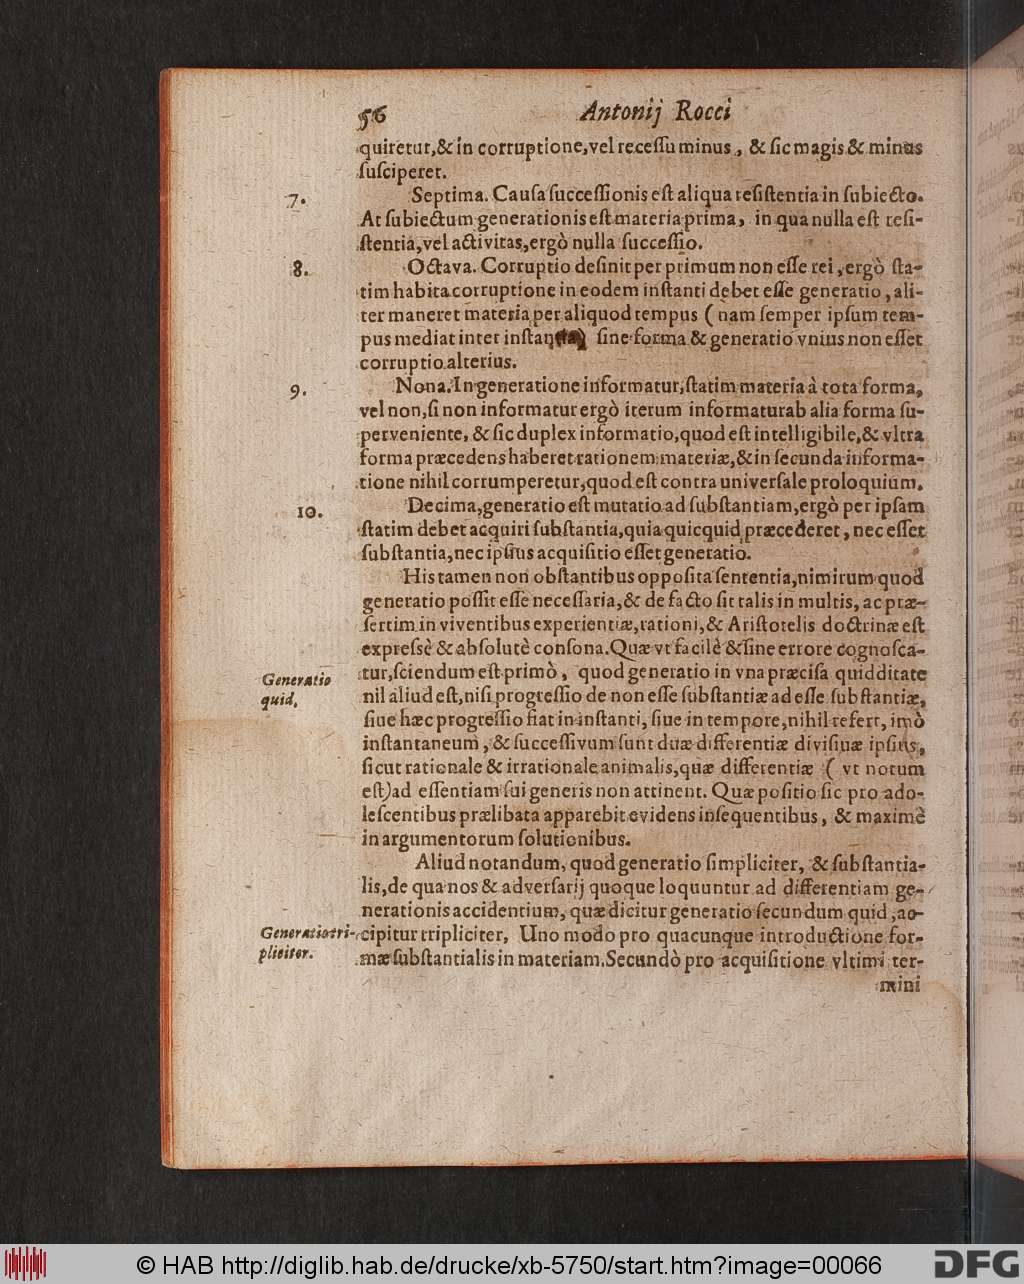 56 Antonij Rocci
quiretur,& in corruptione,vel recessu minus, & sic magis & minus
susciperet.
7. Septima. Causa successionis est aliqua resistentia in subiecto.
At subiectum generationis est materia prima, in qua nulla est resi-
stentiá,vel activitas,ergò nulla successio.
8. Octava. Corruptio definit per primum non esse rei, ergò sta-
tim habita corruptione in eodem instanti debet esse generatio, ali-
ter maneret materia per aliquod tempus ( nam semper ipsum tem-
pus mediat inter sine forma & generatio vnius non esset
corruptio alterius.
9. Nona. In generatione informatur, statim materia à tota forma,
vel non, si non informatur ergò iterum informatur ab alia forma su-
perveniente, & sic duplex informatio, quod est intelligibile,& vltra
forma præcedens haberet rationem materiæ,& in secunda informa-
tione nihil corrumperetur,quod est contra universale proloquium.
10. Decima,generatio est mutatio ad substantiam,ergò per ipsam
statim debet acquiri substantia,quia quicquid præcederet, nec esset
substantia,nec ipsius acquisitio esset generatio.
His tamen non obstantibus opposita sententia,nimirum quod
generatio possit esse necessaria,& de facto sit talis in multis, ac præ-
sertim in viventibus experientiæ,rationi,& Aristotelis doctrinæ est
expressè & absolutè consona. Quæ vt facilè & sine errore cognosca-
Generatio quid, tur,sciendum est primò, quod generatio in vna præcisa quidditate
nil aliud est,nisi progressio de non esse substantiæ ad esse substantiæ,
siue hæc progressio fiat in instanti, siue in tempore,nihil refert, imò
instantaneum, & successivum sunt duæ differentiæ divisiuæ ipsius,
sicut rationale & irrationale animalis,quæ differentiæ ( vt notum
est)ad essentiam sui generis non attinent. Quæ positio sic pro ado-
lescentibus prælibata apparebit evidens in sequentibus, & maximè
in argumentorum solutionibus.
Aliud notandum, quod generatio simpliciter, & substantia-
lis,de qua nos & adversarij quoque loquuntur ad differentiam ge-
nerationis accidentium, quæ dicitur generatio secundum quid, ac-
Generatio tri-pliciter. cipitur tripliciter, Uno modo pro quacunque introductione for-
mæ substantialis in materiam. Secundò pro acquisitione vltimi ter-
mini
© HAB http://diglib.hab.de/drucke/xb-5750/start.htm?image=00066
DFG